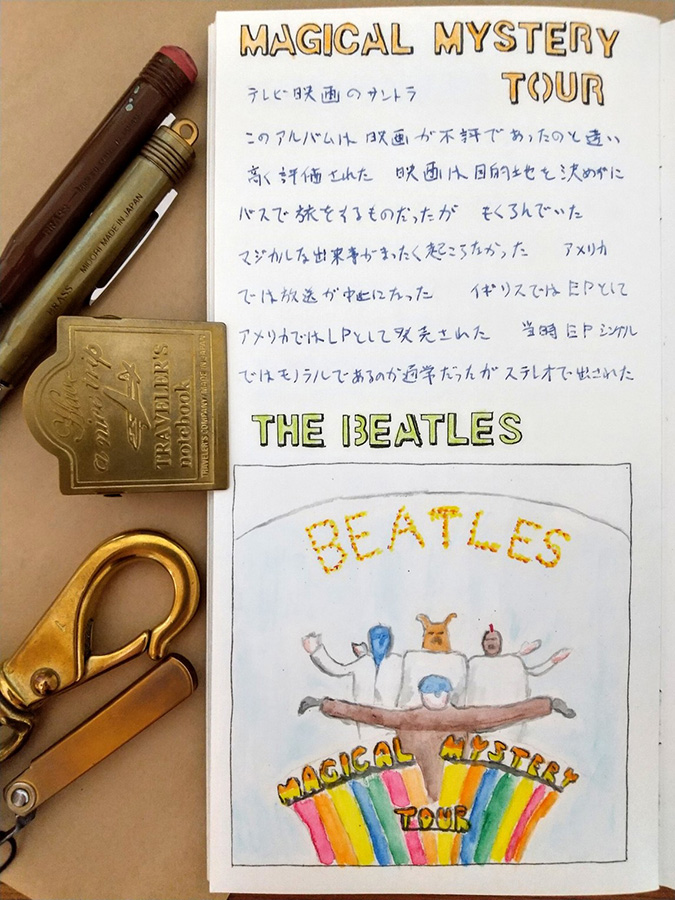 MAGICAL MYSTERY
TOUR
テレビ映画のサントラ
このアルバムは 映画が不評であったのと違い
高く評価された 映画は目的地を決めずに
バスで旅をするものだったが もくろんでいた
マジカルな出来事がまったく起こらなかった アメリカ
では放送が中止になった イギリスではEPとして
アメリカではLPとして発売された 当時EPシングル
ではモノラルであるのが通常だったがステレオで出された
THE BEATLES
BEATLES
MAGICAL MYSTERY
TOUR
BRASS MIDORI MADE IN JAPAN
Have
a nice trip
TRAVELER'S
notebook
TRAVELER'S COMPANY MADE IN JAPAN